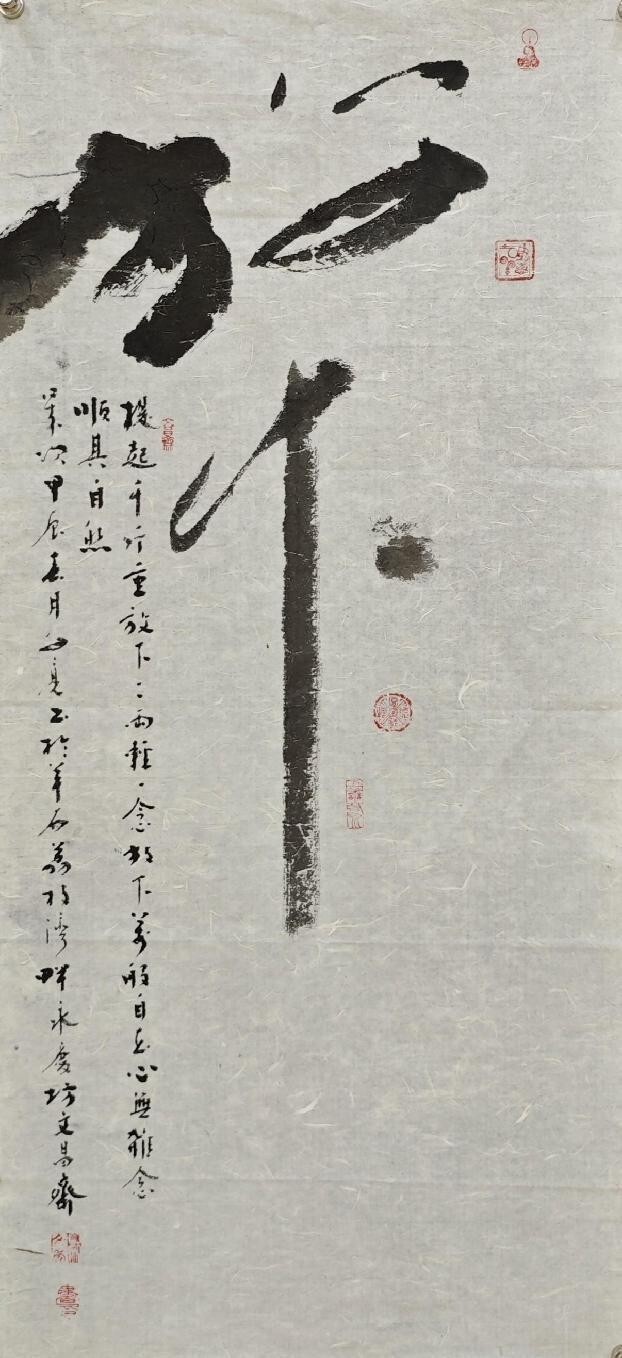 放下
提起千斤重放下二両輕一念放下萬般自在心無雜念
順其自然
歲次甲辰春月亮书於羊石荔枝湾畔永慶坊文昌齋